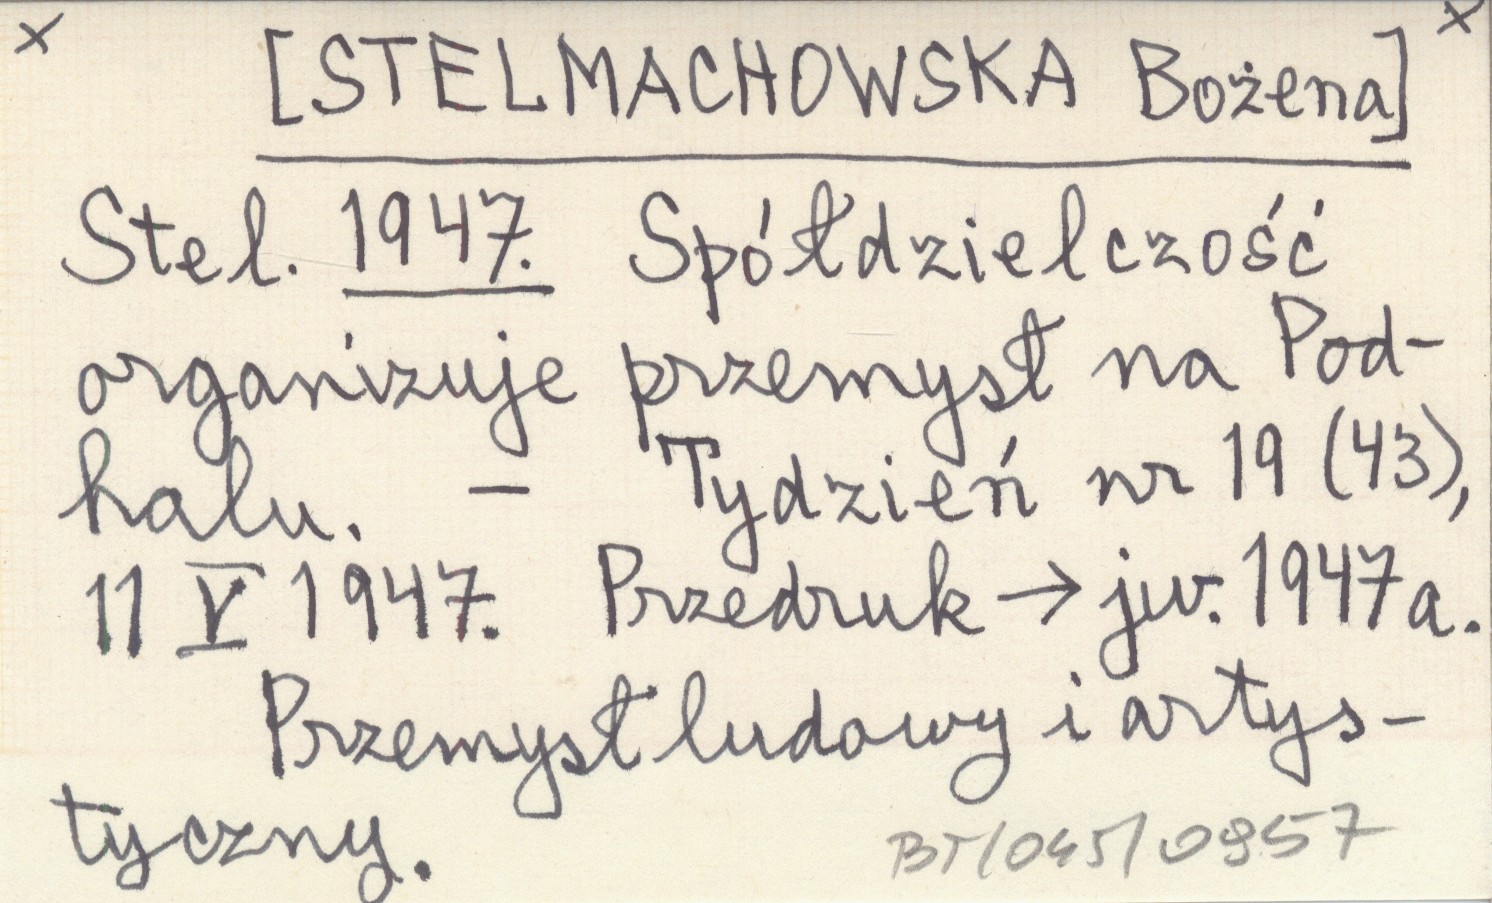 x [STELMACHOWSKA Bożena] x
Stel. 1947. Spółdzielczość
organizuje przemysł na Pod-
halu. — Tydzień nr 19 (43),
11 V 1947. Przedruk → jw. 1947a.
Przemysł ludowy i artys-
tyczny.
BT/045/0957